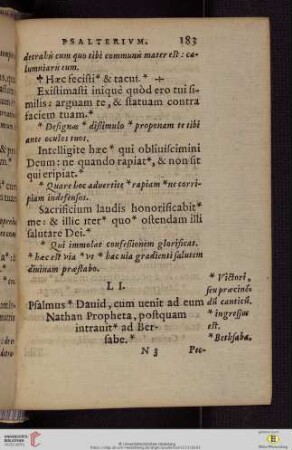 PSALTERIVM. 183
detrahis cum quo tibi communis mater est: ca-
lumniaris eum.
Hæc fecisti* & tacui.*
Existimasti iniquè quòd ero tui si-
milis: arguam te, & statuam contra
faciem tuam.*
* Designas * dissimulo * proponam te tibi
ante oculos tuos.
Intelligite hæc* qui obliuiscimini
Deum: ne quando rapiat*, & non sit
qui eripiat.*
* Quare hoc aduertite * rapiam * ne corri-
piam indefensos.
Sacrificium laudis honorificabit*
me: & illic iter* quo* ostendam illi
salutare Dei.*
* Qui immolat confessionem glorificat.
* hæc est via * vt * hac uia gradienti salutem
diuinam præstabo.
LI.
Psalmus* Dauid, cum uenit ad eum
Nathan Propheta, postquam
intrauit* ad Ber-
sabe.*
* Victori,
seu præcinẽ-
dũ canticũ.
* ingressus
est.
* Bethsaba.
N 3 Pec-
UNIVERSITÄTS-
BIBLIOTHEK
HEIDELBERG
© Universitätsbibliothek Heidelberg